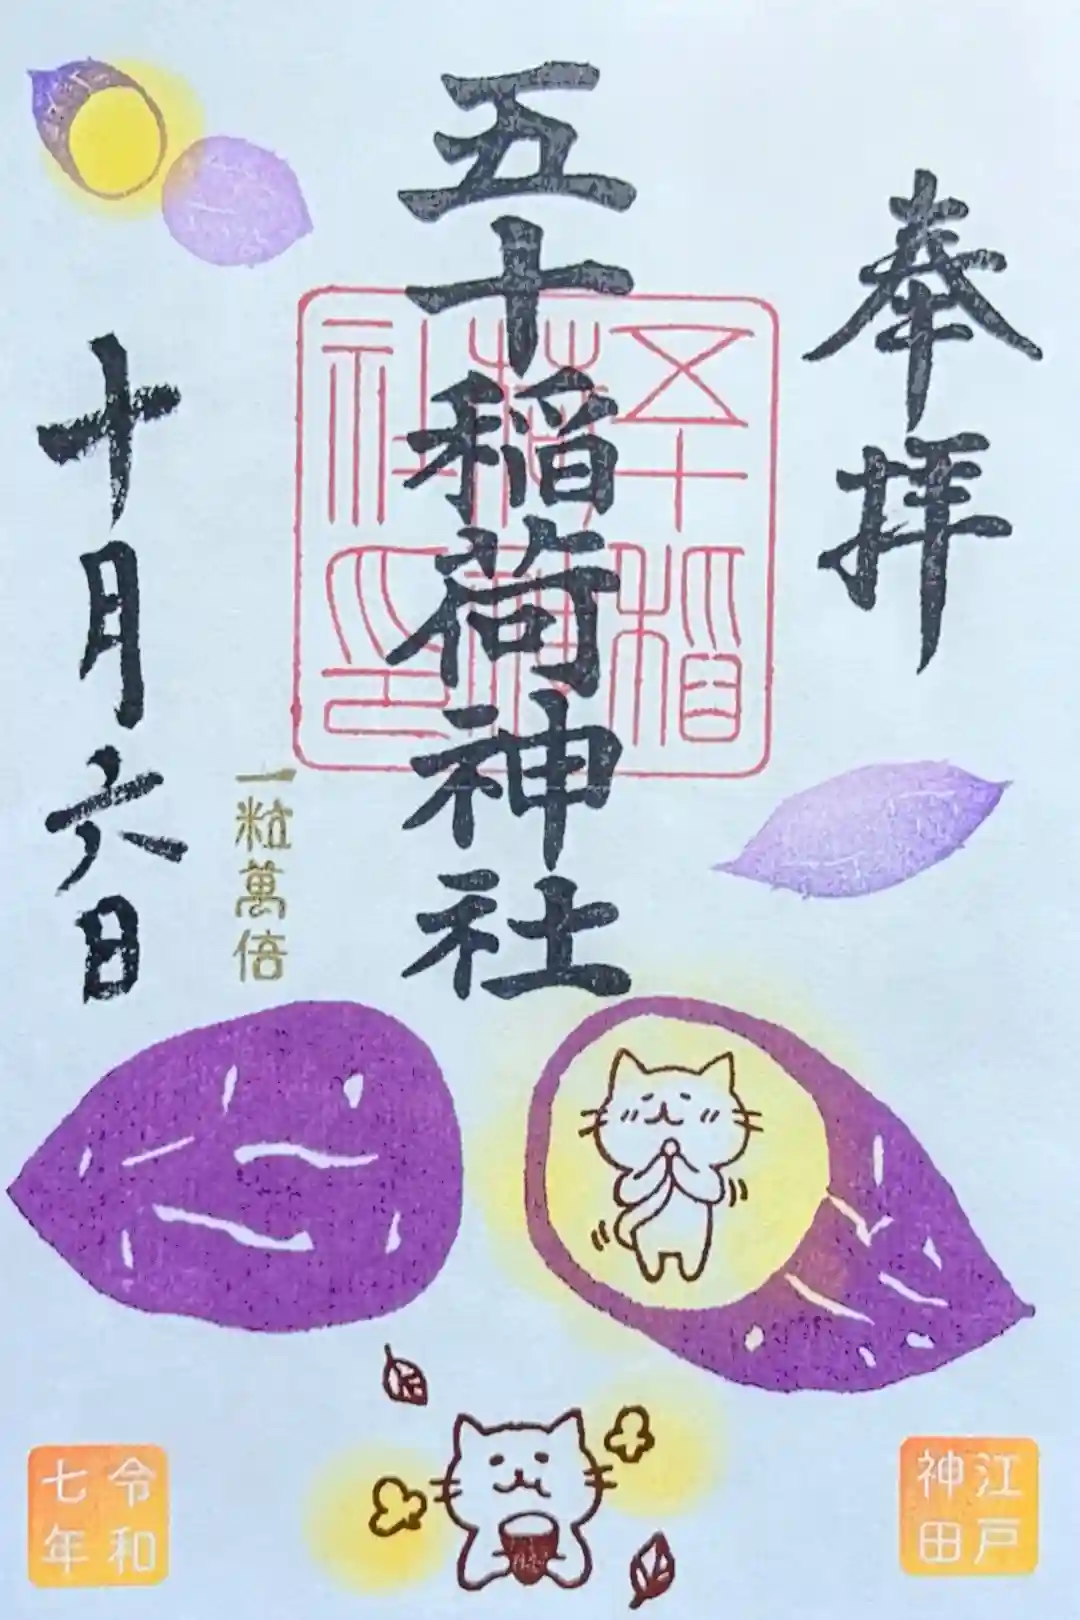 奉拝
五十稲荷神社
五十稲荷神社印
一粒萬倍
十月六日
江戸
神田
令和
七年